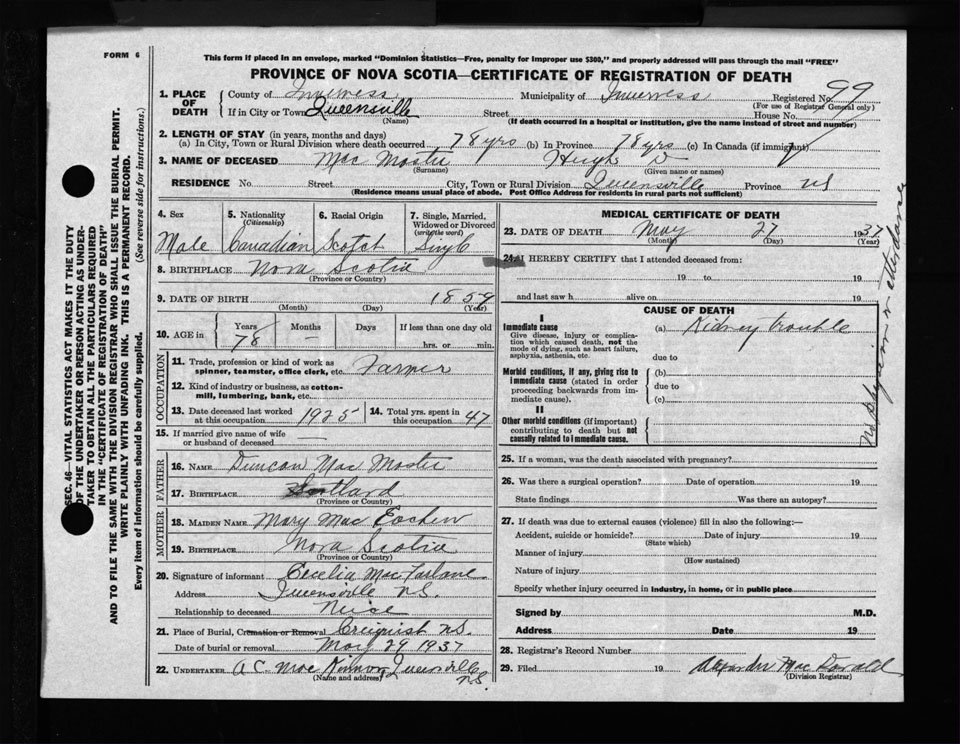 FORM 6
This form if placed in an envelope, marked "Dominion Statistics—Free, penalty for improper use $300," and properly addressed will pass through the mail "FREE"
PROVINCE OF NOVA SCOTIA—CERTIFICATE OF REGISTRATION OF DEATH
1. PLACE OF DEATH
County of Inverness Municipality of Inverness Registered No. 99
(For use of Registrar General only)
If in City or Town Queensville Street House No.
(Name) (If death occurred in a hospital or institution, give the name instead of street and number)
2. LENGTH OF STAY (in years, months and days)
(a) In City, Town or Rural Division where death occurred 78 yrs (b) In Province 78 yrs (c) In Canada (if immigrant)
3. NAME OF DECEASED Mac Hugh D
(Surname) (Given name or names)
RESIDENCE No. Street City, Town or Rural Division Queensville Province NS
(Residence means usual place of abode. Post Office Address for residents in rural parts not sufficient)
4. Sex
Male
5. Nationality (Citizenship)
Canadian
6. Racial Origin
Scotch
7. Single, Married, Widowed or Divorced (write the word)
8. BIRTHPLACE Nova Scotia
(Province or Country)
9. DATE OF BIRTH 1859
(Month) (Day) (Year)
10. AGE in Years Months Days If less than one day old
78 — hrs. or min.
OCCUPATION
11. Trade, profession or kind of work as spinner, teamster, office clerk, etc. Farmer
12. Kind of industry or business, as cotton-mill, lumbering, bank, etc.
13. Date deceased last worked at this occupation 1925
14. Total yrs. spent in this occupation 47
15. If married give name of wife or husband of deceased —
FATHER
16. NAME Duncan Mac
17. BIRTHPLACE Scotland
(Province or Country)
MOTHER
18. MAIDEN NAME Mary Mac Eachen
19. BIRTHPLACE Nova Scotia
(Province or Country)
20. Signature of informant Cecelia MacFarlane
Address Queensville N.S.
Relationship to deceased Neice
21. Place of Burial, Cremation or Removal Creignish N.S.
Date of burial or removal May 29 1937
22. UNDERTAKER A C MacKinnon Queensville N.S.
(Name and address)
MEDICAL CERTIFICATE OF DEATH
23. DATE OF DEATH May 27 1937
(Month) (Day) (Year)
24. I HEREBY CERTIFY that I attended deceased from:
19 to 19
and last saw h alive on 19
CAUSE OF DEATH
I
Immediate cause
Give disease, injury or complication which caused death, not the mode of dying, such as heart failure, asphyxia, asthenia, etc.
(a) Kidney trouble
due to
Morbid conditions, if any, giving rise to immediate cause (stated in order proceeding backwards from immediate cause).
(b)
due to
(c)
II
Other morbid conditions (if important) contributing to death but not causally related to immediate cause.
No Physician in attendance
25. If a woman, was the death associated with pregnancy?
26. Was there a surgical operation? Date of operation 19
State findings Was there an autopsy?
27. If death was due to external causes (violence) fill in also the following:—
Accident, suicide or homicide? Date of injury 19
(State which)
Manner of injury
(How sustained)
Nature of injury
Specify whether injury occurred in industry, in home, or in public place
Signed by M.D.
Address Date 19
28. Registrar's Record Number
29. Filed 19 Alexander MacDonald
(Division Registrar)
SEC. 46—VITAL STATISTICS ACT MAKES IT THE DUTY
OF THE UNDERTAKER OR PERSON ACTING AS UNDER-
TAKER TO OBTAIN ALL THE PARTICULARS REQUIRED
IN THE "CERTIFICATE OF REGISTRATION OF DEATH"
AND TO FILE THE SAME WITH THE DIVISION REGISTRAR WHO SHALL ISSUE THE BURIAL PERMIT.
WRITE PLAINLY WITH UNFADING INK. THIS IS A PERMANENT RECORD.
Every item of information should be carefully supplied. (See reverse side for instructions.)